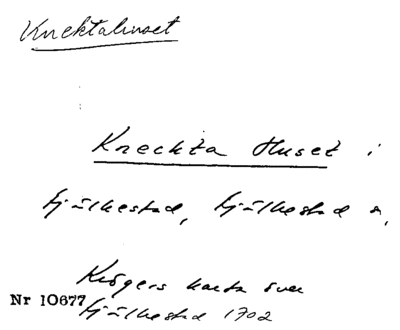 Knektahuset
Knechta Huset i
Fjälkestad, Fjälkestad s,
Krögers karta över
Nr 10677 Fjälkestad 1702